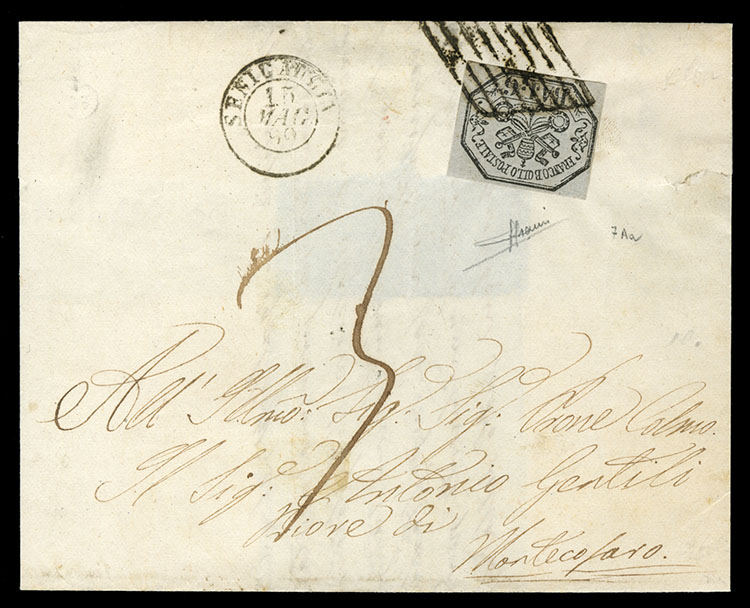 SENIGAGLIA
15
MAG
FRANCO BOLLO POSTALE
7Aa
3
All' Illmo: Sig. Sig: Prone Colmo.
Il Sig: Antonio Gentili
Priore di
Montecosaro.